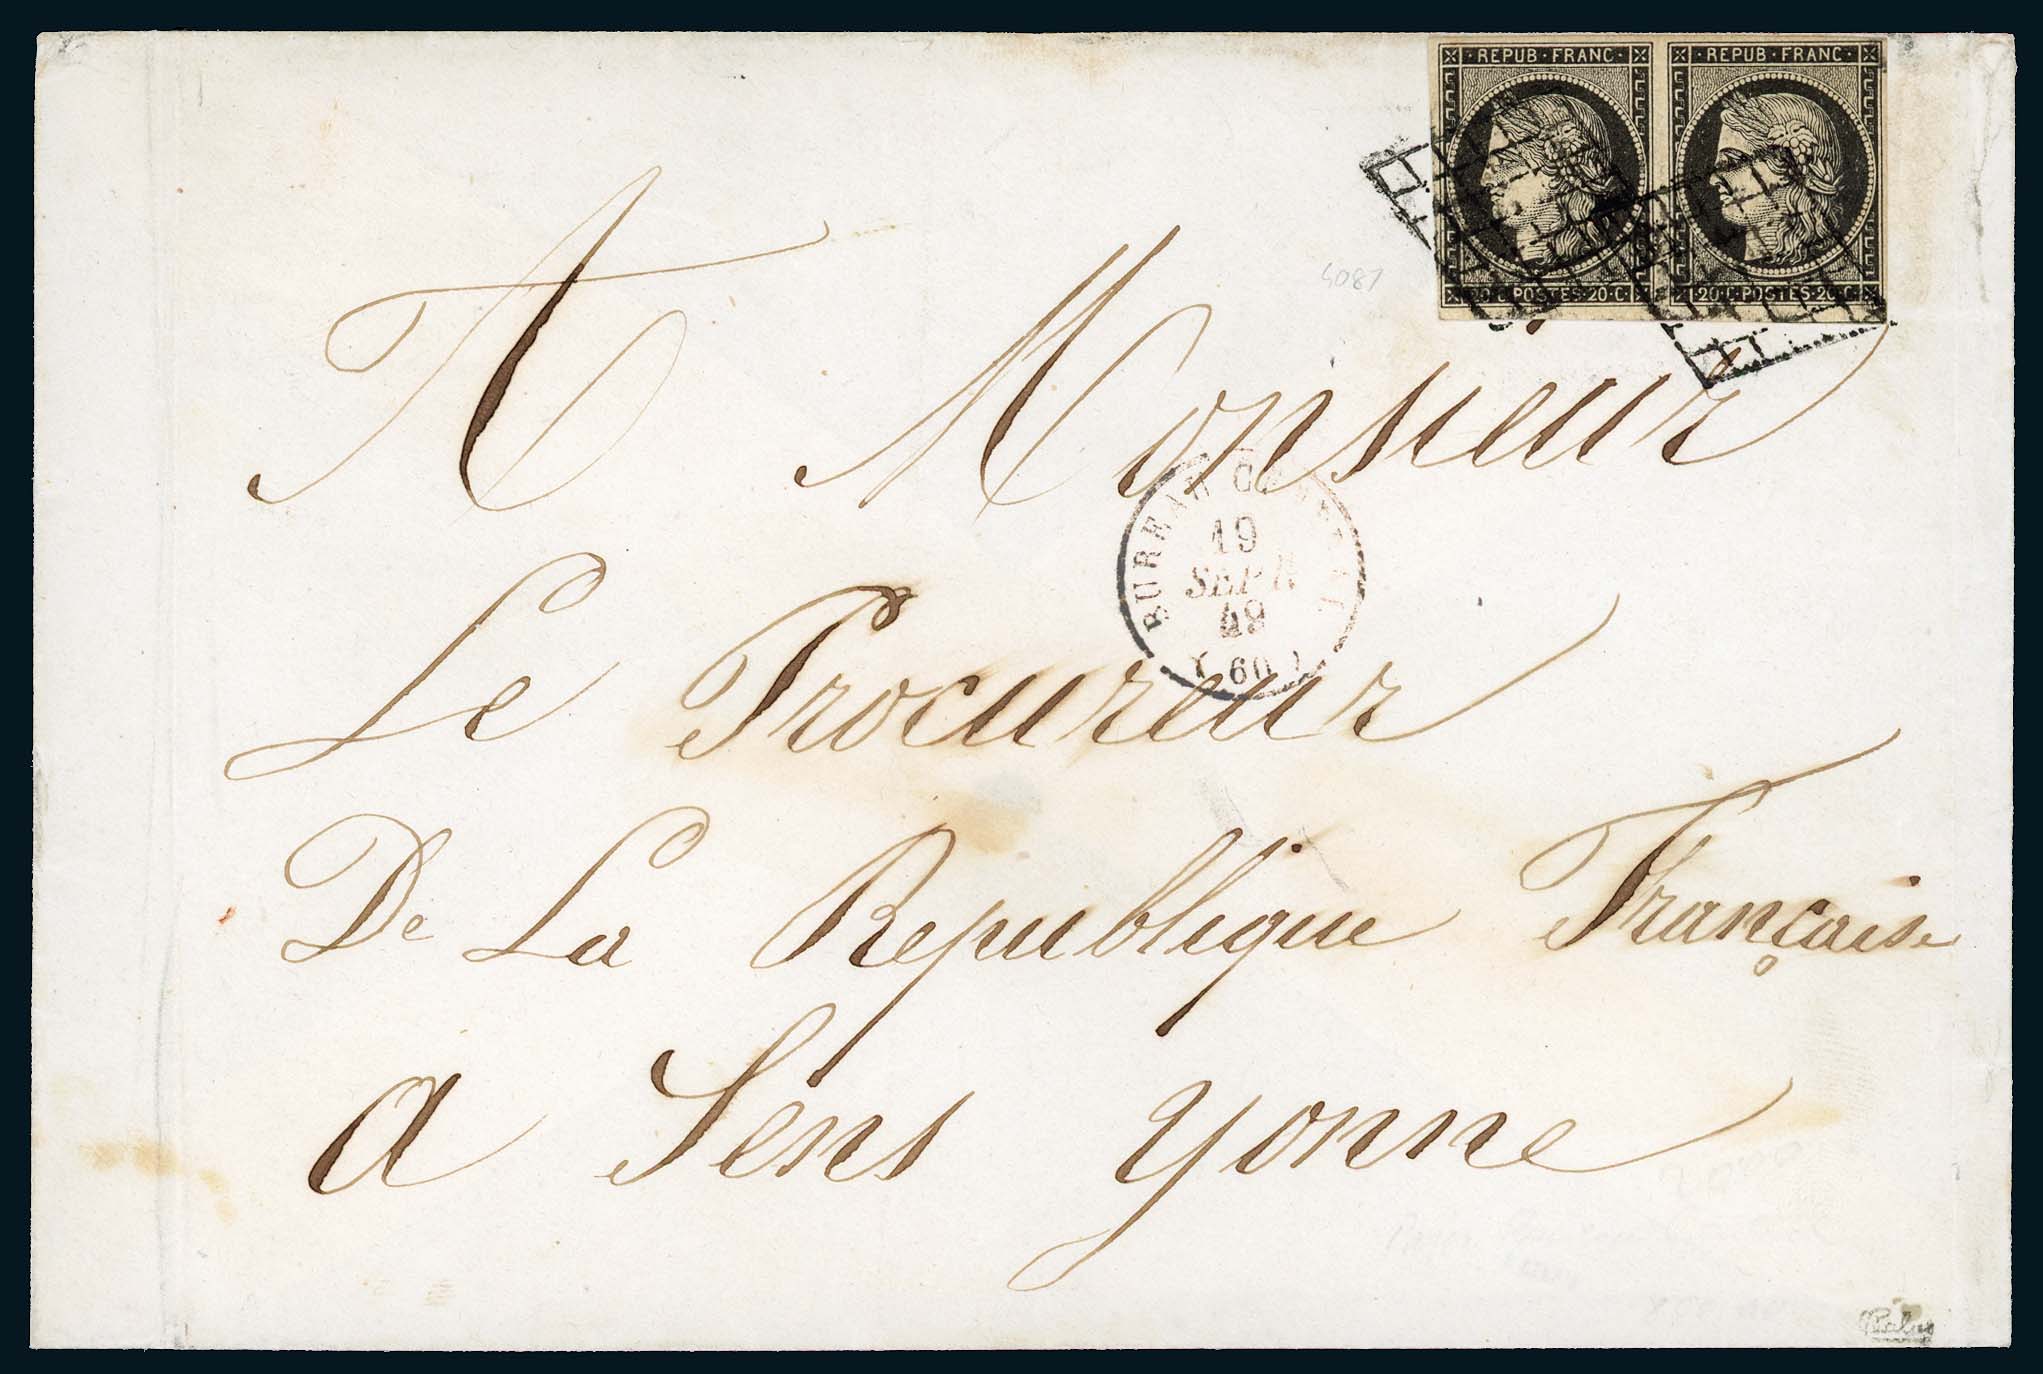 REPUB·FRANC· REPUB·FRANC·
20·C·POSTES·20·C· 20·C·POSTES·20·C·
A Monsieur
BUREAU CENTRAL
19
SEPT
49
(60)
Le Procureur
De La Republique Française
a Sens Yonne